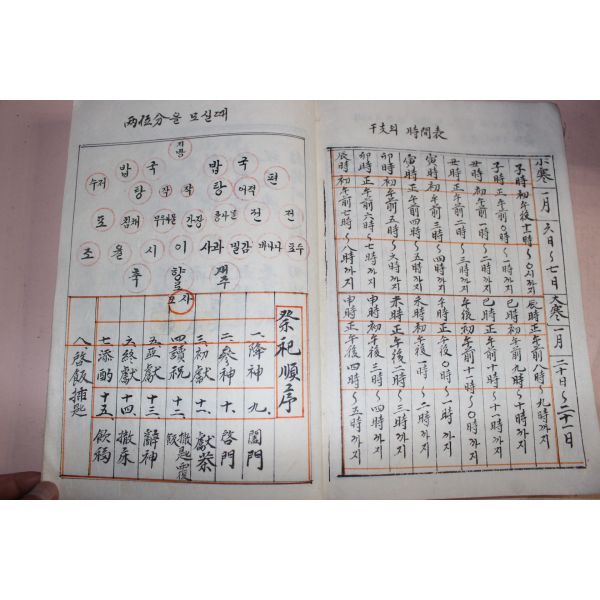 兩位分을 모실때
지방
밥 국 밥 국
수저 탕 작 작 탕 어적 편
포 간장 전 전
조 율 시 이 사과 밀감 바나나
촉 향로
모사
祭祀順序
一、降神 九、闔門
二、參神 十、啓門
三、初獻 十一、獻茶
四、讀祝 十二、撤匙覆飯
五、亞獻 十三、辭神
六、終獻 十四、撤床
七、添酌 十五、飮福
八、啓飯揷匙
干支의 時間表
小寒 一月 六日~七日 大寒 一月 二十日~二十一日
子時初 午後十一時~0시까지 辰時正 午前八時~九時까지
子時正 午前0時~一時까지 巳時初 午前九時~十時까지
丑時初 午前一時~二時까지 巳時正 午前十時~十一時까지
丑時正 午前二時~三時까지
寅時初 午前三時~四時까지 午時正 午後0時~一時까지
寅時正 午前四時~五時까지 未時初 午後一時~二時까지
卯時初 午前五時~六時까지 未時正 午後二時~三時까지
卯時正 午前六時~七時까지 申時初 午後三時~四時까지
辰時初 午前七時~八時까지 申時正 午後四時~五時까지